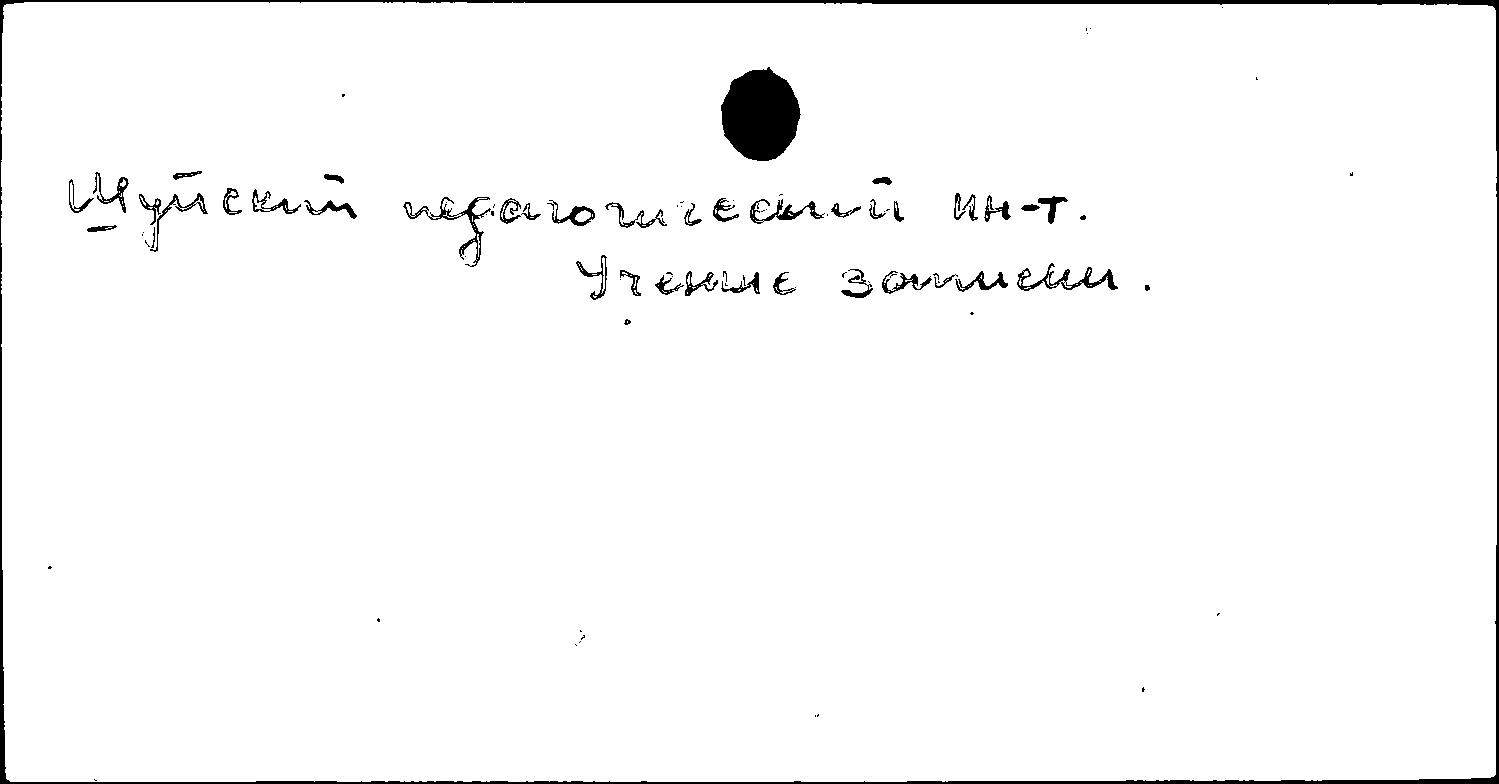 Шуйский педагогический ин-т.
Ученые записки.